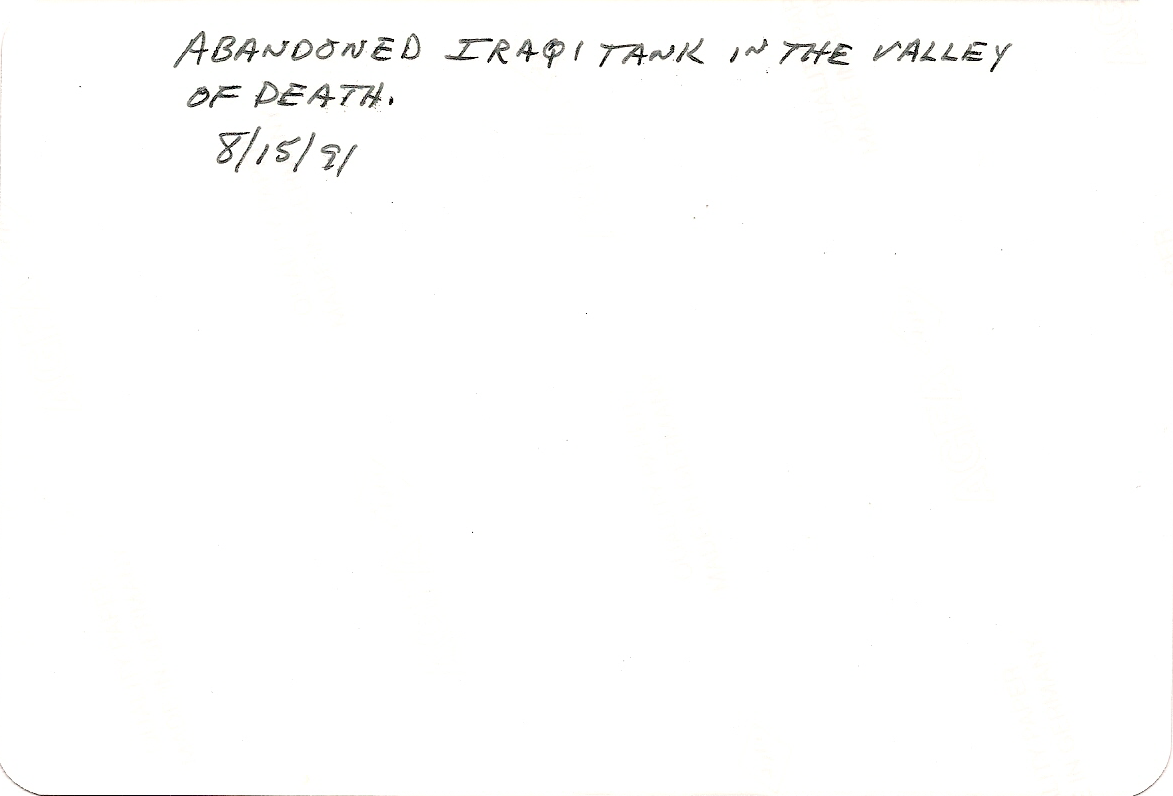 ABANDONED IRAQI TANK IN THE VALLEY
OF DEATH.
8/15/91